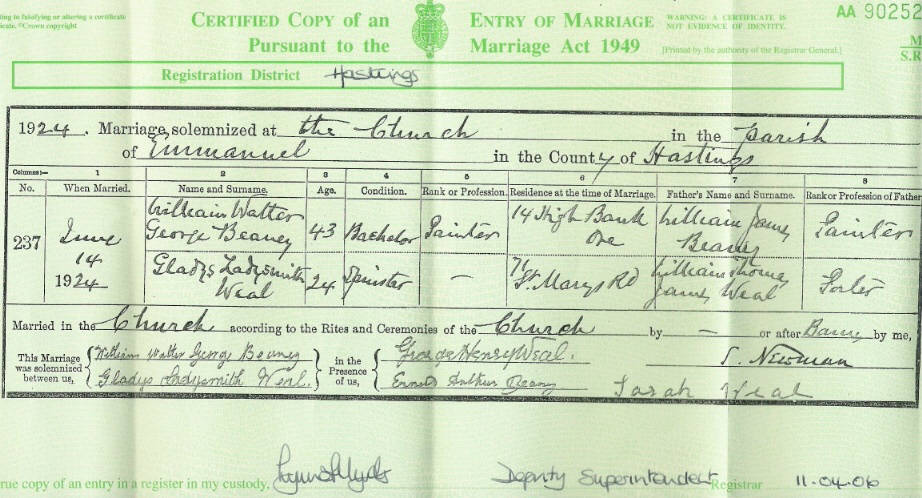 ting to falsifying or altering a certificate
icate. ©Crown copyright
CERTIFIED COPY of an ENTRY OF MARRIAGE
Pursuant to the Marriage Act 1949
WARNING: A CERTIFICATE IS
NOT EVIDENCE OF IDENTITY.
[Printed by the authority of the Registrar General.]
AA 90252
M
S.R
Registration District Hastings
1924. Marriage solemnized at the Church in the Parish
of Emmanuel in the County of Hastings
Columns:— 1 2 3 4 5 6 7 8
No. When Married. Name and Surname. Age. Condition. Rank or Profession. Residence at the time of Marriage. Father's Name and Surname. Rank or Profession of Father
237 June 14 1924 William Walter George Beaney 43 Bachelor Painter 14 High Bank Ore William James Beaney Painter
Gladys Ladysmith Weal 24 Spinster – St. Marys Rd William Thomas James Weal Porter
Married in the Church according to the Rites and Ceremonies of the Church by – or after Banns by me,
This Marriage was solemnized between us, William Walter George Beaney Gladys Ladysmith Weal in the Presence of us, George Henry Weal. Ernest Arthur Beany Sarah Weal Newman
rue copy of an entry in a register in my custody. Deputy Superintendent Registrar 11.04.06